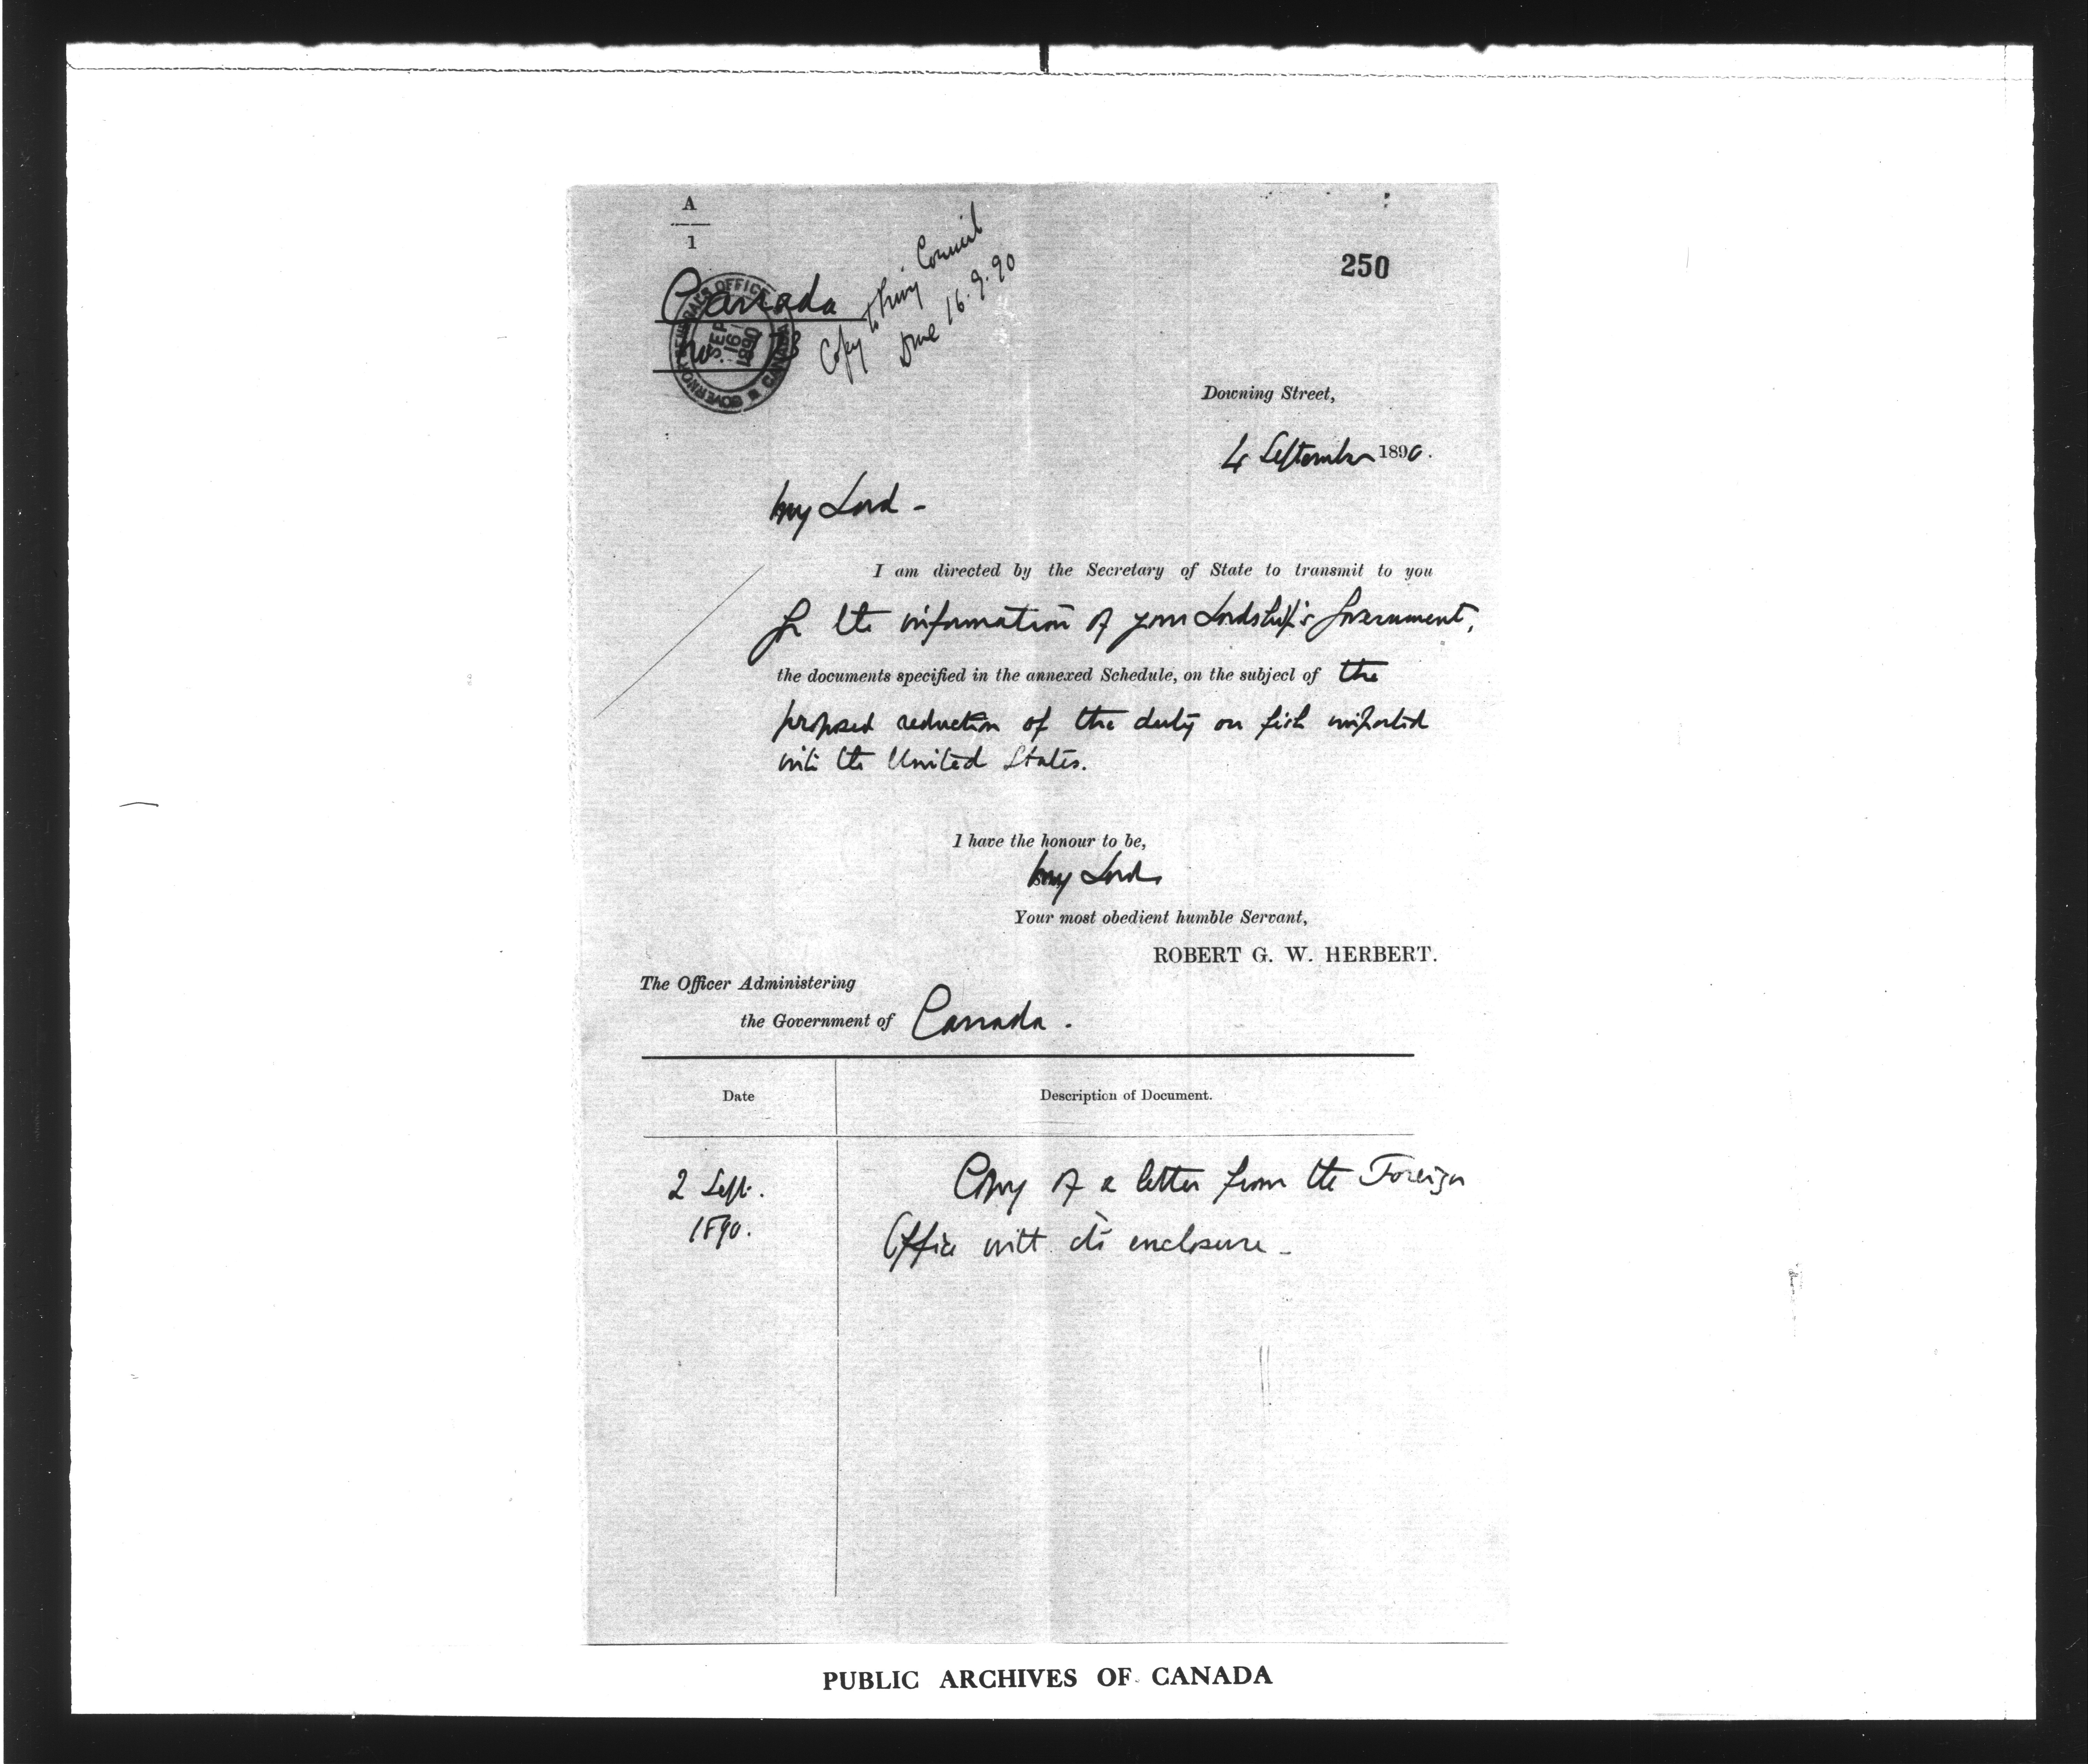 A
1
250
Canada
No.
GOVERNOR GENERAL'S OFFICE CANADA
SEP
16
1890
Copy to Privy Council
Done 16.9.90
Downing Street,
4 September 1890.
My Lord -
I am directed by the Secretary of State to transmit to you
for the information of your Lordship's Government,
the documents specified in the annexed Schedule, on the subject of the
proposed reduction of the duty on fish imported
into the United States.
I have the honour to be,
My Lord,
Your most obedient humble Servant,
ROBERT G. W. HERBERT.
The Officer Administering
the Government of Canada.
Date Description of Document.
2 Sept. Copy of a letter from the Foreign
1890. Office with its enclosure -
PUBLIC ARCHIVES OF CANADA